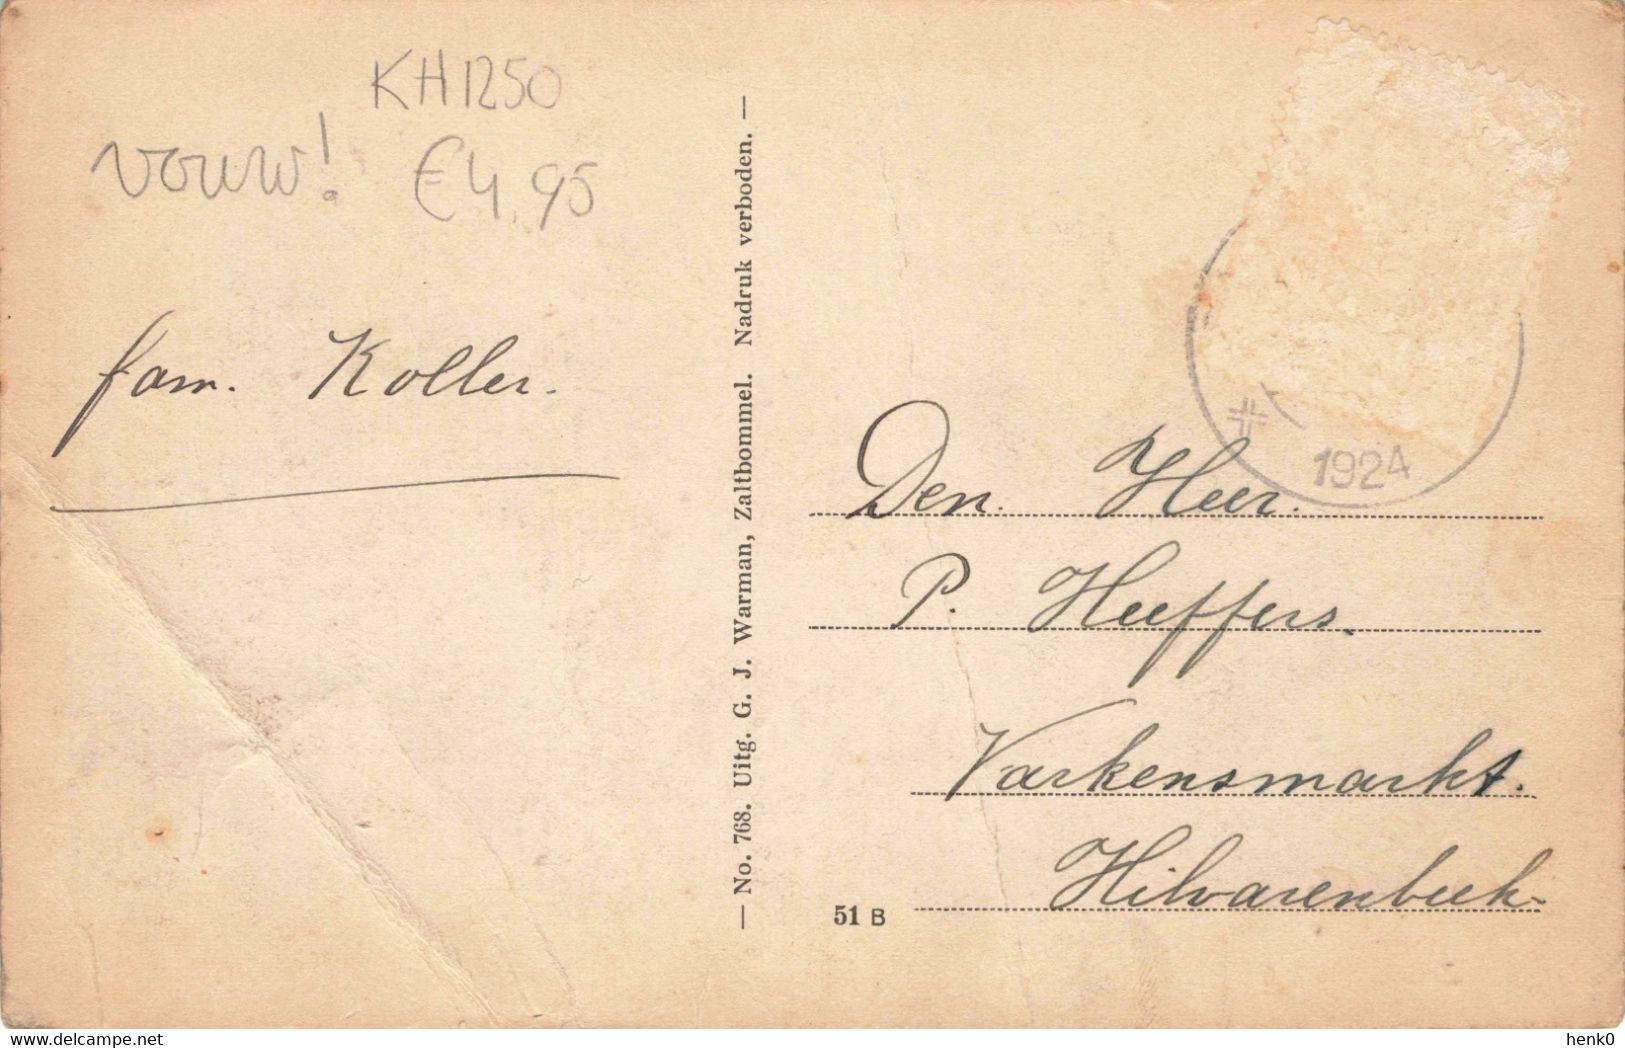 KH1250
vouw! €4,95
fam. Koller.
— No. 768. Uitg. G. J. Warman, Zaltbommel. Nadruk verboden. —
1924
Den. Heer.
P. Heeffers.
Varkensmarkt.
Hilvarenbeek.
51 B
delcampe.net
henk0